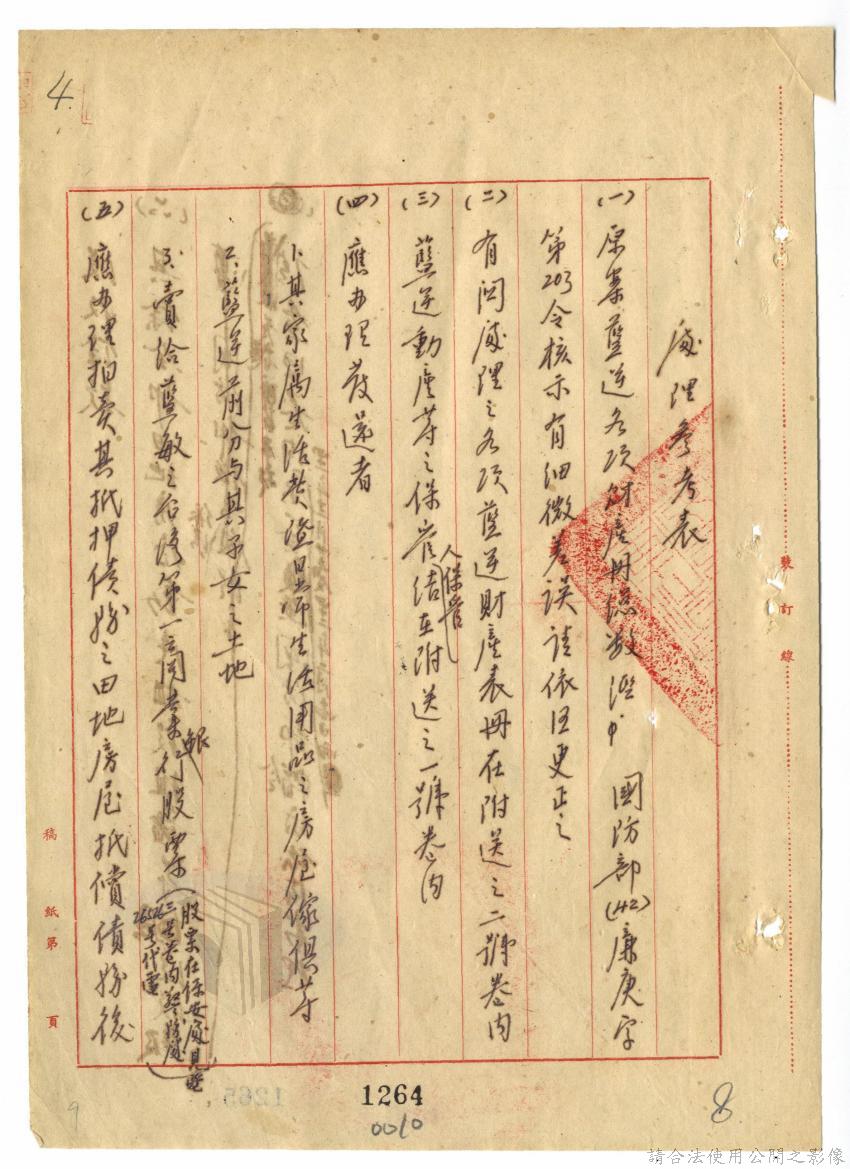 4
處理參考表
(一) 原案藍逆各項財產冊總數經 國防部(42)廉庚字
第203令核示有細微差誤請依限更正之
(二) 有関處理之各項藍逆財產表冊在附送之二號卷内
(三) 藍逆動產等之保管人保管結在附送之一號卷内
(四) 應办理發還者
1、其家屬生活費暨日常生活用品之房屋傢俱等
2、藍逆前分与其子女之土地
3、賣給藍敏之台灣第一商業銀行股票(股票在保安處見
三号卷内
265号代電
(五) 應办理拍卖其抵押債務之田地房屋抵償債務後
裝訂線
稿紙第 頁
1264
0010
8
9
1265
請合法使用公開之影像